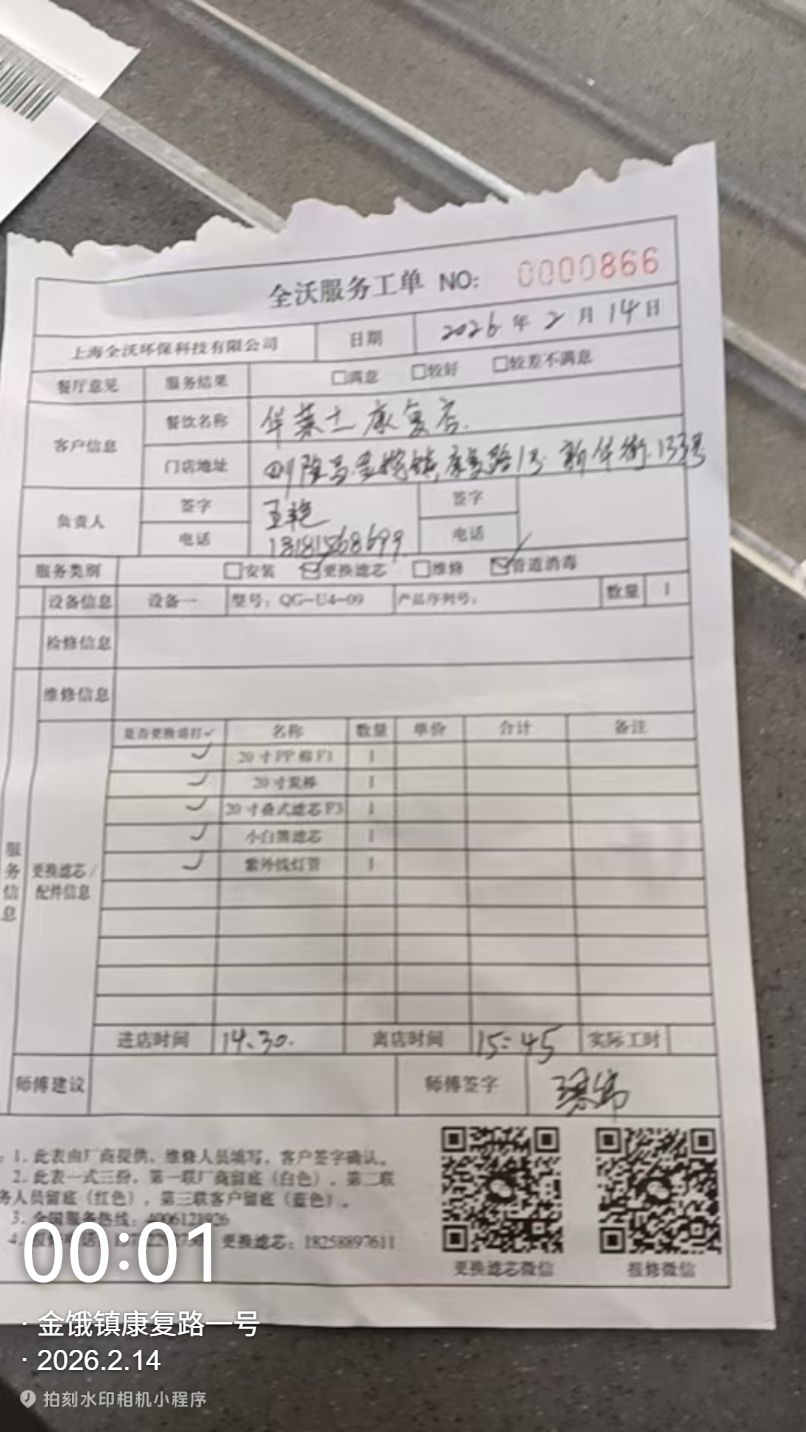 全沃服务工单 NO: 0000866
上海全沃环保科技有限公司 日期 2026年2月14日
餐厅意见 服务结果 □满意 □较好 □较差不满意
客户信息 餐饮名称 华莱士康复店
门店地址 康复路1号 新华街133号
负责人 签字 王艳 签字
电话 电话
服务类别 □安装 ☑更换滤芯 □维修 ☑管道消毒
设备信息 设备一 型号：QG-U4-09 产品序列号： 数量 1
检修信息
维修信息
是否更换请打✓ 名称 数量 单价 合计 备注
✓ 20寸PP棉F1 1
✓ 20寸炭棒 1
✓ 20寸叠式滤芯F3 1
✓ 小白熊滤芯 1
✓ 紫外线灯管 1
服务信息
更换滤芯/配件信息
进店时间 14.30. 离店时间 15:45 实际工时
师傅建议 师傅签字
：1. 此表由厂商提供，维修人员填写，客户签字确认。
2. 此表一式三份，第一联厂商留底（白色），第二联
务人员留底（红色），第三联客户留底（蓝色）。
3. 全国服务热线：4006121926
4. 更换滤芯：18258897611
更换滤芯微信 报修微信
00:01
· 金饿镇康复路一号
· 2026.2.14
拍刻水印相机小程序